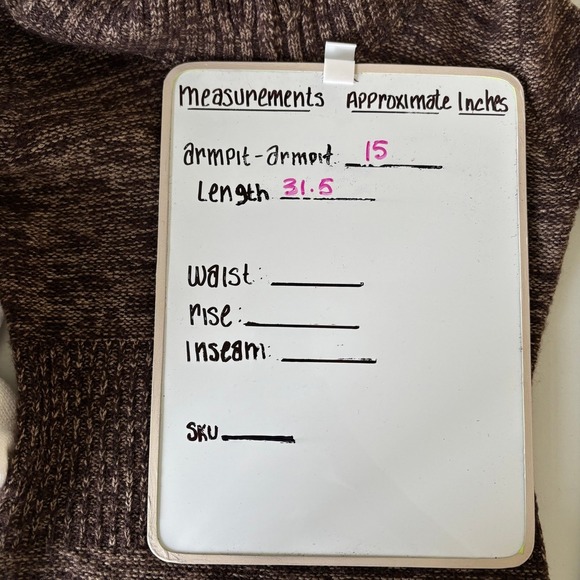 measurements Approximate Inches
armpit-armpit 15
Length 31.5
waist:
rise:
Inseam:
SKU